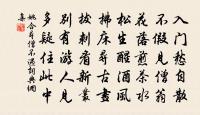 入門愁自散
不假見僧翁
花落煎茶水
松生醒酒風
拂床尋古畫
拔刺看新叢
別有游人見
多疑住此中
姚合尋僧不遇詞典網
集